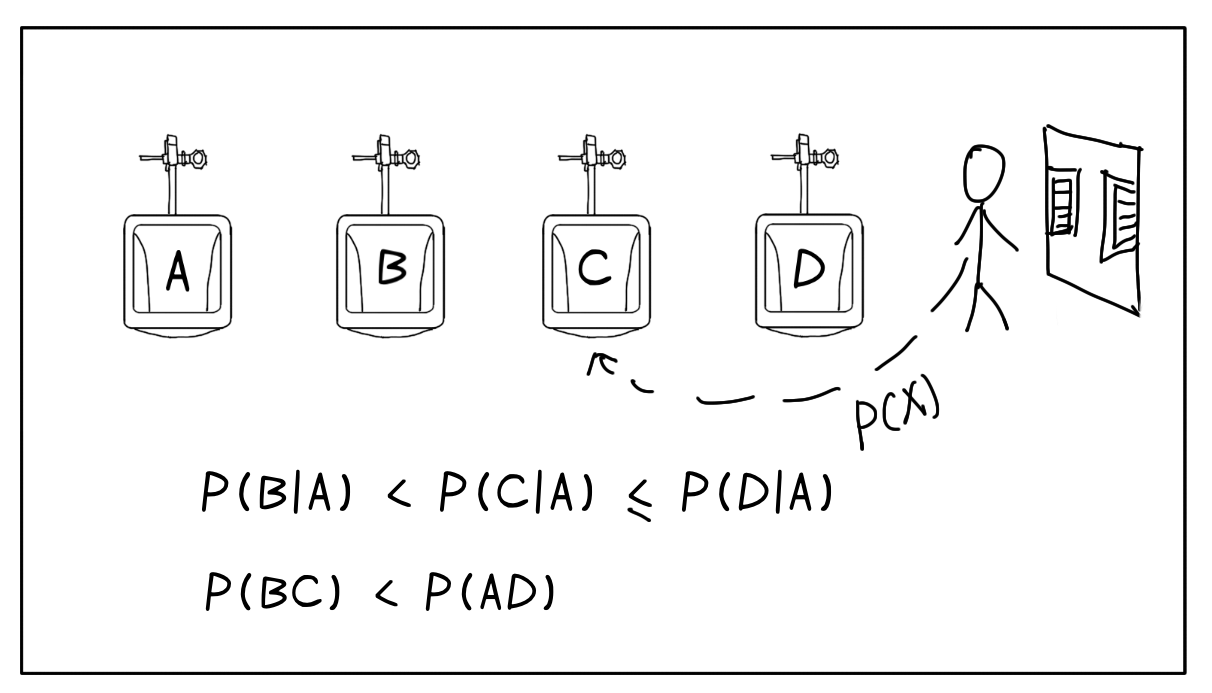 A B C D
P(X)
P(B|A) < P(C|A) ≤ P(D|A)
P(BC) < P(AD)